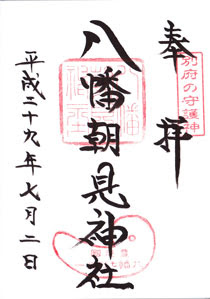 別府の守護神
奉拝
八幡朝見神社
平成二十九年七月二日